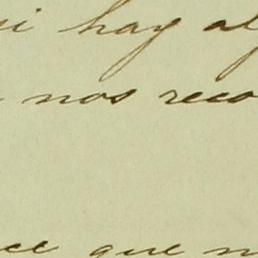 si hay al
nos reco
ce que n